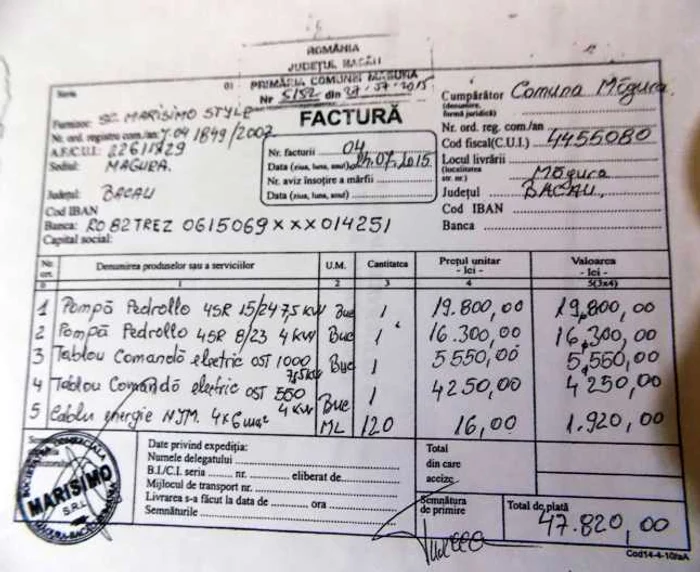 ROMÂNIA
JUDEȚUL BACĂU
PRIMĂRIA COMUNEI MĂGURA
Nr 5152 din 27.07.2015
Seria
Furnizor SC. MARISIMO STYLE
Nr. ord. registru com./an
A.F./C.U.I.
Sediul: MAGURA.
Județul: BACAU
Cod IBAN
Banca: RO82TREZ 0615069XXX014251
Capital social:
FACTURĂ
Nr. facturii 04
Data (ziua, luna, anul) 24.07.2015
Nr. aviz însoțire a mărfii
Data (ziua, luna, anul)
Cumpărător Comuna Măgura
(denumirea,
forma juridică)
Nr. ord. reg. com./an
Cod fiscal(C.U.I.) 4455080
Locul livrării
(localitatea
str. nr.) Măgura
Județul BACAU
Cod IBAN
Banca
Nr. crt. Denumirea produselor sau a serviciilor U.M. Cantitatea Prețul unitar - lei - Valoarea - lei -
0 1 2 3 4 5(3x4)
1 Pompă Pedrollo 4SR 15/24 7,5 kW Buc 1 19.800,00 19,800,00
2 Pompă Pedrollo 4SR 8/23 4 kW Buc 1 16.300,00 16,300,00
3 Tablou Comandă electric OST 1000 7,5kW Buc 1 5550,00 5,550,00
4 Tablou Comandă electric OST 550 4 kW Buc 1 4250,00 4250,00
5 Cablu energie 4x6 ML 120 16,00 1.920,00
SOCIETATEA COMERCIALA
MARISIMO
S.R.L.
Date privind expediția:
Numele delegatului
B.I./C.I. seria nr. eliberat de
Mijlocul de transport nr.
Livrarea s-a făcut la data de ora
Semnăturile
Total
din care
accize
Semnătura
de primire
Total de plată
47.820,00